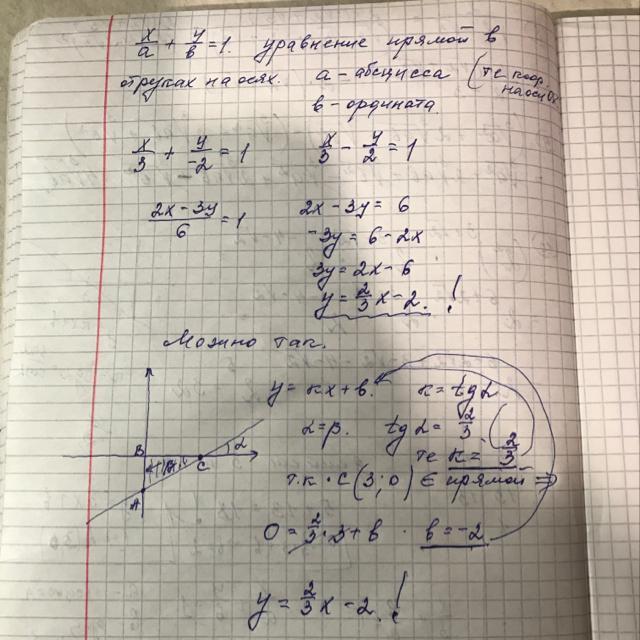 x/a + y/в = 1. уравнение прямой в
отрузках на осях. а - абсцисса (те коор на оси Ох
в - ордината.
x/3 + y/-2 = 1
x/3 - y/2 = 1
(2x - 3y)/6 = 1
2x - 3y = 6
-3y = 6 - 2x
3y = 2x - 6
y = 2/3 x - 2. !
Можно так.
y = кx + в. к = tg α
α = β. tg α = 2/3
те к = 2/3
т.к. C (3; 0) ∈ прямой ⇒
0 = 2/3 · 3 + в. в = -2
B
C
α
A
y = 2/3 x - 2. !